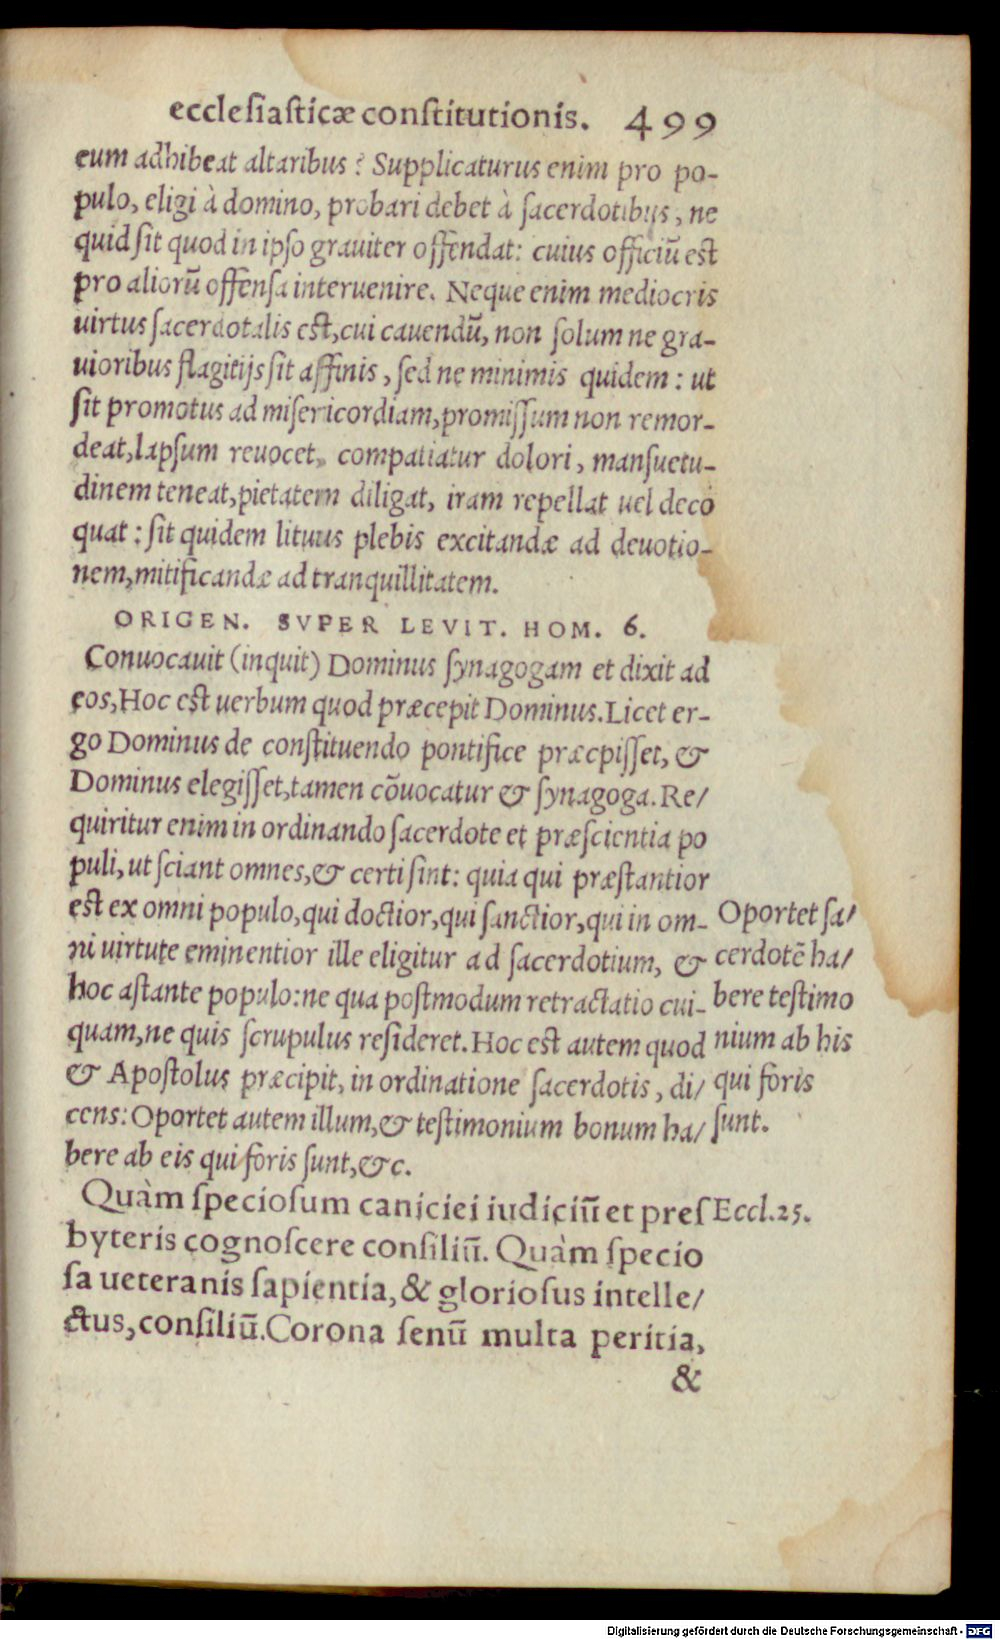 ecclesiasticæ constitutionis. 499
eum adhibeat altaribus? Supplicaturus enim pro po-
pulo, eligi à domino, probari debet à sacerdotibus, ne
quid sit quod in ipso grauiter offendat: cuius officiũ est
pro aliorũ offensa interuenire. Neque enim mediocris
uirtus sacerdotalis est, cui cauendũ, non solum ne gra-
uioribus flagitijs sit affinis, sed ne minimis quidem: ut
sit promotus ad misericordiam, promissum non remor-
deat, lapsum reuocet, compatiatur dolori, mansuetu-
dinem teneat, pietatem diligat, iram repellat uel deco
quat: sit quidem lituus plebis excitandæ ad deuotio-
nem, mitificandæ ad tranquillitatem.
ORIGEN. SVPER LEVIT. HOM. 6.
Conuocauit (inquit) Dominus synagogam et dixit ad
eos, Hoc est uerbum quod præcepit Dominus. Licet er-
go Dominus de constituendo pontifice præcpisset, &
Dominus elegisset, tamen cõuocatur & synagoga. Re/
quiritur enim in ordinando sacerdote et præscientia po
puli, ut sciant omnes, & certi sint: quia qui præstantior
est ex omni populo, qui doctior, qui sanctior, qui in om-
ni uirtute eminentior ille eligitur ad sacerdotium, &
hoc astante populo: ne qua postmodum retractatio cui-
quam, ne quis scrupulus resideret. Hoc est autem quod
& Apostolus præcipit, in ordinatione sacerdotis, di/
cens: Oportet autem illum, & testimonium bonum ha/
bere ab eis qui foris sunt, &c.
Oportet sa/
cerdotẽ ha/
bere testimo
nium ab his
qui foris
sunt.
Quàm speciosum caniciei iudiciũ et pres
byteris cognoscere consiliũ. Quàm specio
sa ueteranis sapientia, & gloriosus intelle/
ctus, consiliũ. Corona senũ multa peritia,
&
Eccl. 25.
Digitalisierung gefördert durch die Deutsche Forschungsgemeinschaft - DFG